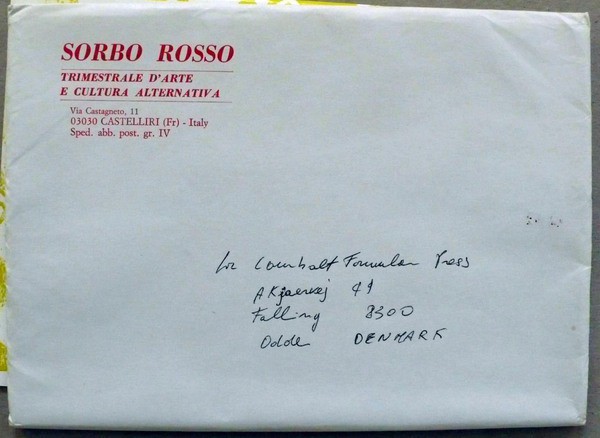 SORBO ROSSO
TRIMESTRALE D'ARTE
E CULTURA ALTERNATIVA
Via Castagneto, 11
03030 CASTELLIRI (Fr) - Italy
Sped. abb. post. gr. IV
Formular Press
Falling 8300
Odde DENMARK